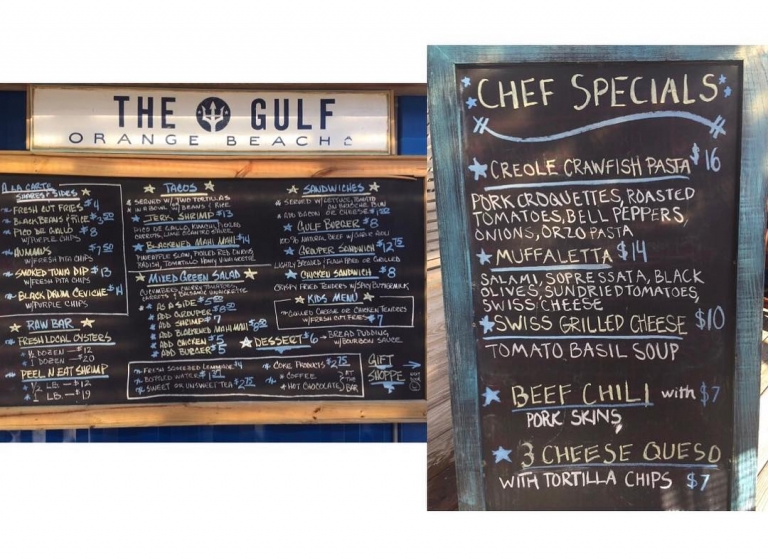 THE GULF
ORANGE BEACH
A LA CARTE
SHARES & SIDES
FRESH CUT FRIES $4
BLACK BEANS & RICE $3.50
PICO DE GALLO $8
W/PURPLE CHIPS
HUMMUS $7.50
W/FRESH PITA CHIPS
SMOKED TUNA DIP $13
W/FRESH PITA CHIPS
BLACK DRUM CEVICHE $14
W/PURPLE CHIPS
RAW BAR
FRESH LOCAL OYSTERS
1/2 DOZEN - $12
1 DOZEN - $20
PEEL N EAT SHRIMP
1/2 LB. - $12
1 LB. - $19
TACOS
SERVED W/ TWO TORTILLAS
BEANS & RICE
JERK SHRIMP $13
PICO DE GALLO,
BLACKENED MAHI MAHI $14
PINEAPPLE SLAW, PICKLED RED ONIONS
MIXED GREEN SALAD
CUCUMBERS, CHERRY TOMATOES,
CARROTS & BALSAMIC VINAIGRETTE
AS A SIDE
ADD GROUPER
ADD SHRIMP $7
ADD BLACKENED MAHI MAHI
ADD CHICKEN $5
ADD BURGER $5
FRESH SQUEEZED LEMONADE $4
BOTTLED WATER
SWEET OR UNSWEET TEA $2.75
SANDWICHES
SERVED W/LETTUCE, TOMATO
ON BRIOCHE BUN
ADD BACON OR CHEESE
GULF BURGER $8
NATURAL BEEF
GROUPER SANDWICH $12.75
LIGHTLY BREADED, FRIED OR GRILLED
CHICKEN SANDWICH $8
CRISPY FRIED W/SPICY BUTTERMILK
KIDS MENU
GRILLED CHEESE OR CHICKEN TENDERS
W/FRESH CUT FRIES $7
DESSERT $6 - BREAD PUDDING
W/BOURBON SAUCE
COKE PRODUCTS $2.75
COFFEE
HOT CHOCOLATE
AT THE BAR
GIFT
SHOPPE
CHEF SPECIALS
CREOLE CRAWFISH PASTA $16
PORK CROQUETTES, ROASTED
TOMATOES, BELL PEPPERS,
ONIONS, ORZO PASTA
MUFFALETTA $14
SALAMI, SOPRESSATA, BLACK
OLIVES, SUNDRIED TOMATOES,
SWISS CHEESE
SWISS GRILLED CHEESE $10
TOMATO BASIL SOUP
BEEF CHILI with $7
PORK SKINS
3 CHEESE QUESO
WITH TORTILLA CHIPS $7